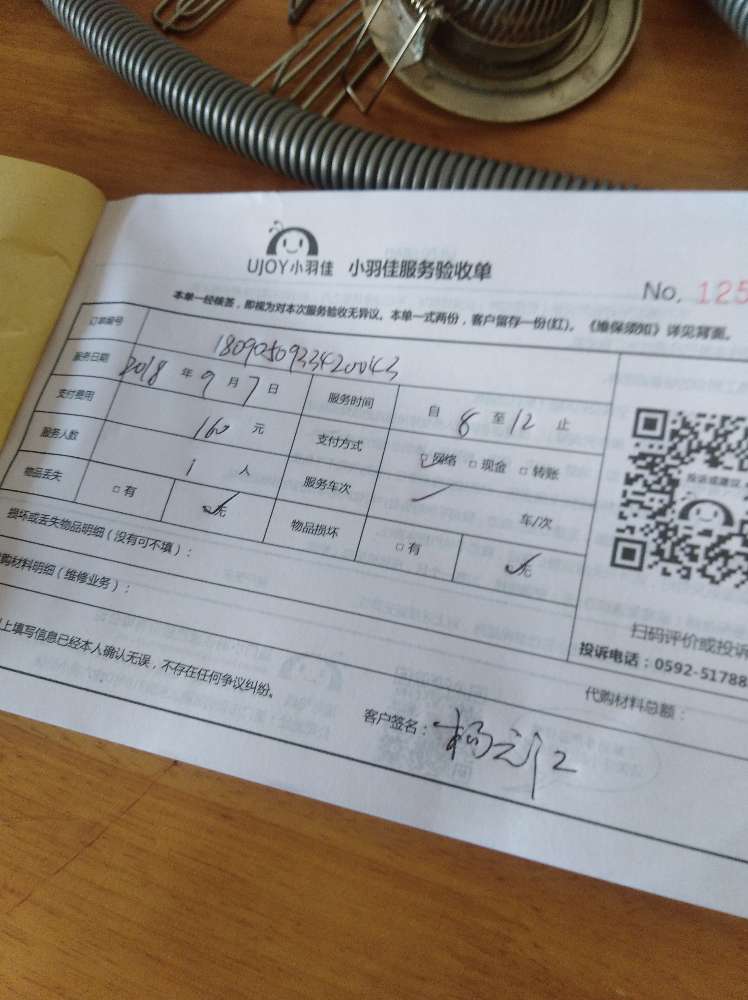 UJOY小羽佳 小羽佳服务验收单
No. 125
本单一经核签，即视为对本次服务验收无异议。本单一式两份，客户留存一份(红)。《维保须知》详见背面。
订单编号 1809050933420043
服务日期 2018 年 9 月 7 日 服务时间 自 8 至 12 止
支付费用 160 元 支付方式 ☑网络 □现金 □转账
服务人数 1 人 服务车次 车/次
物品丢失 □有 ☑无 物品损坏 □有 ☑无
损坏或丢失物品明细（没有可不填）：
购材料明细（维修业务）：
代购材料总额：
上填写信息已经本人确认无误，不存在任何争议纠纷。
客户签名：
投诉或建议
扫码评价或投诉
投诉电话：0592-51788